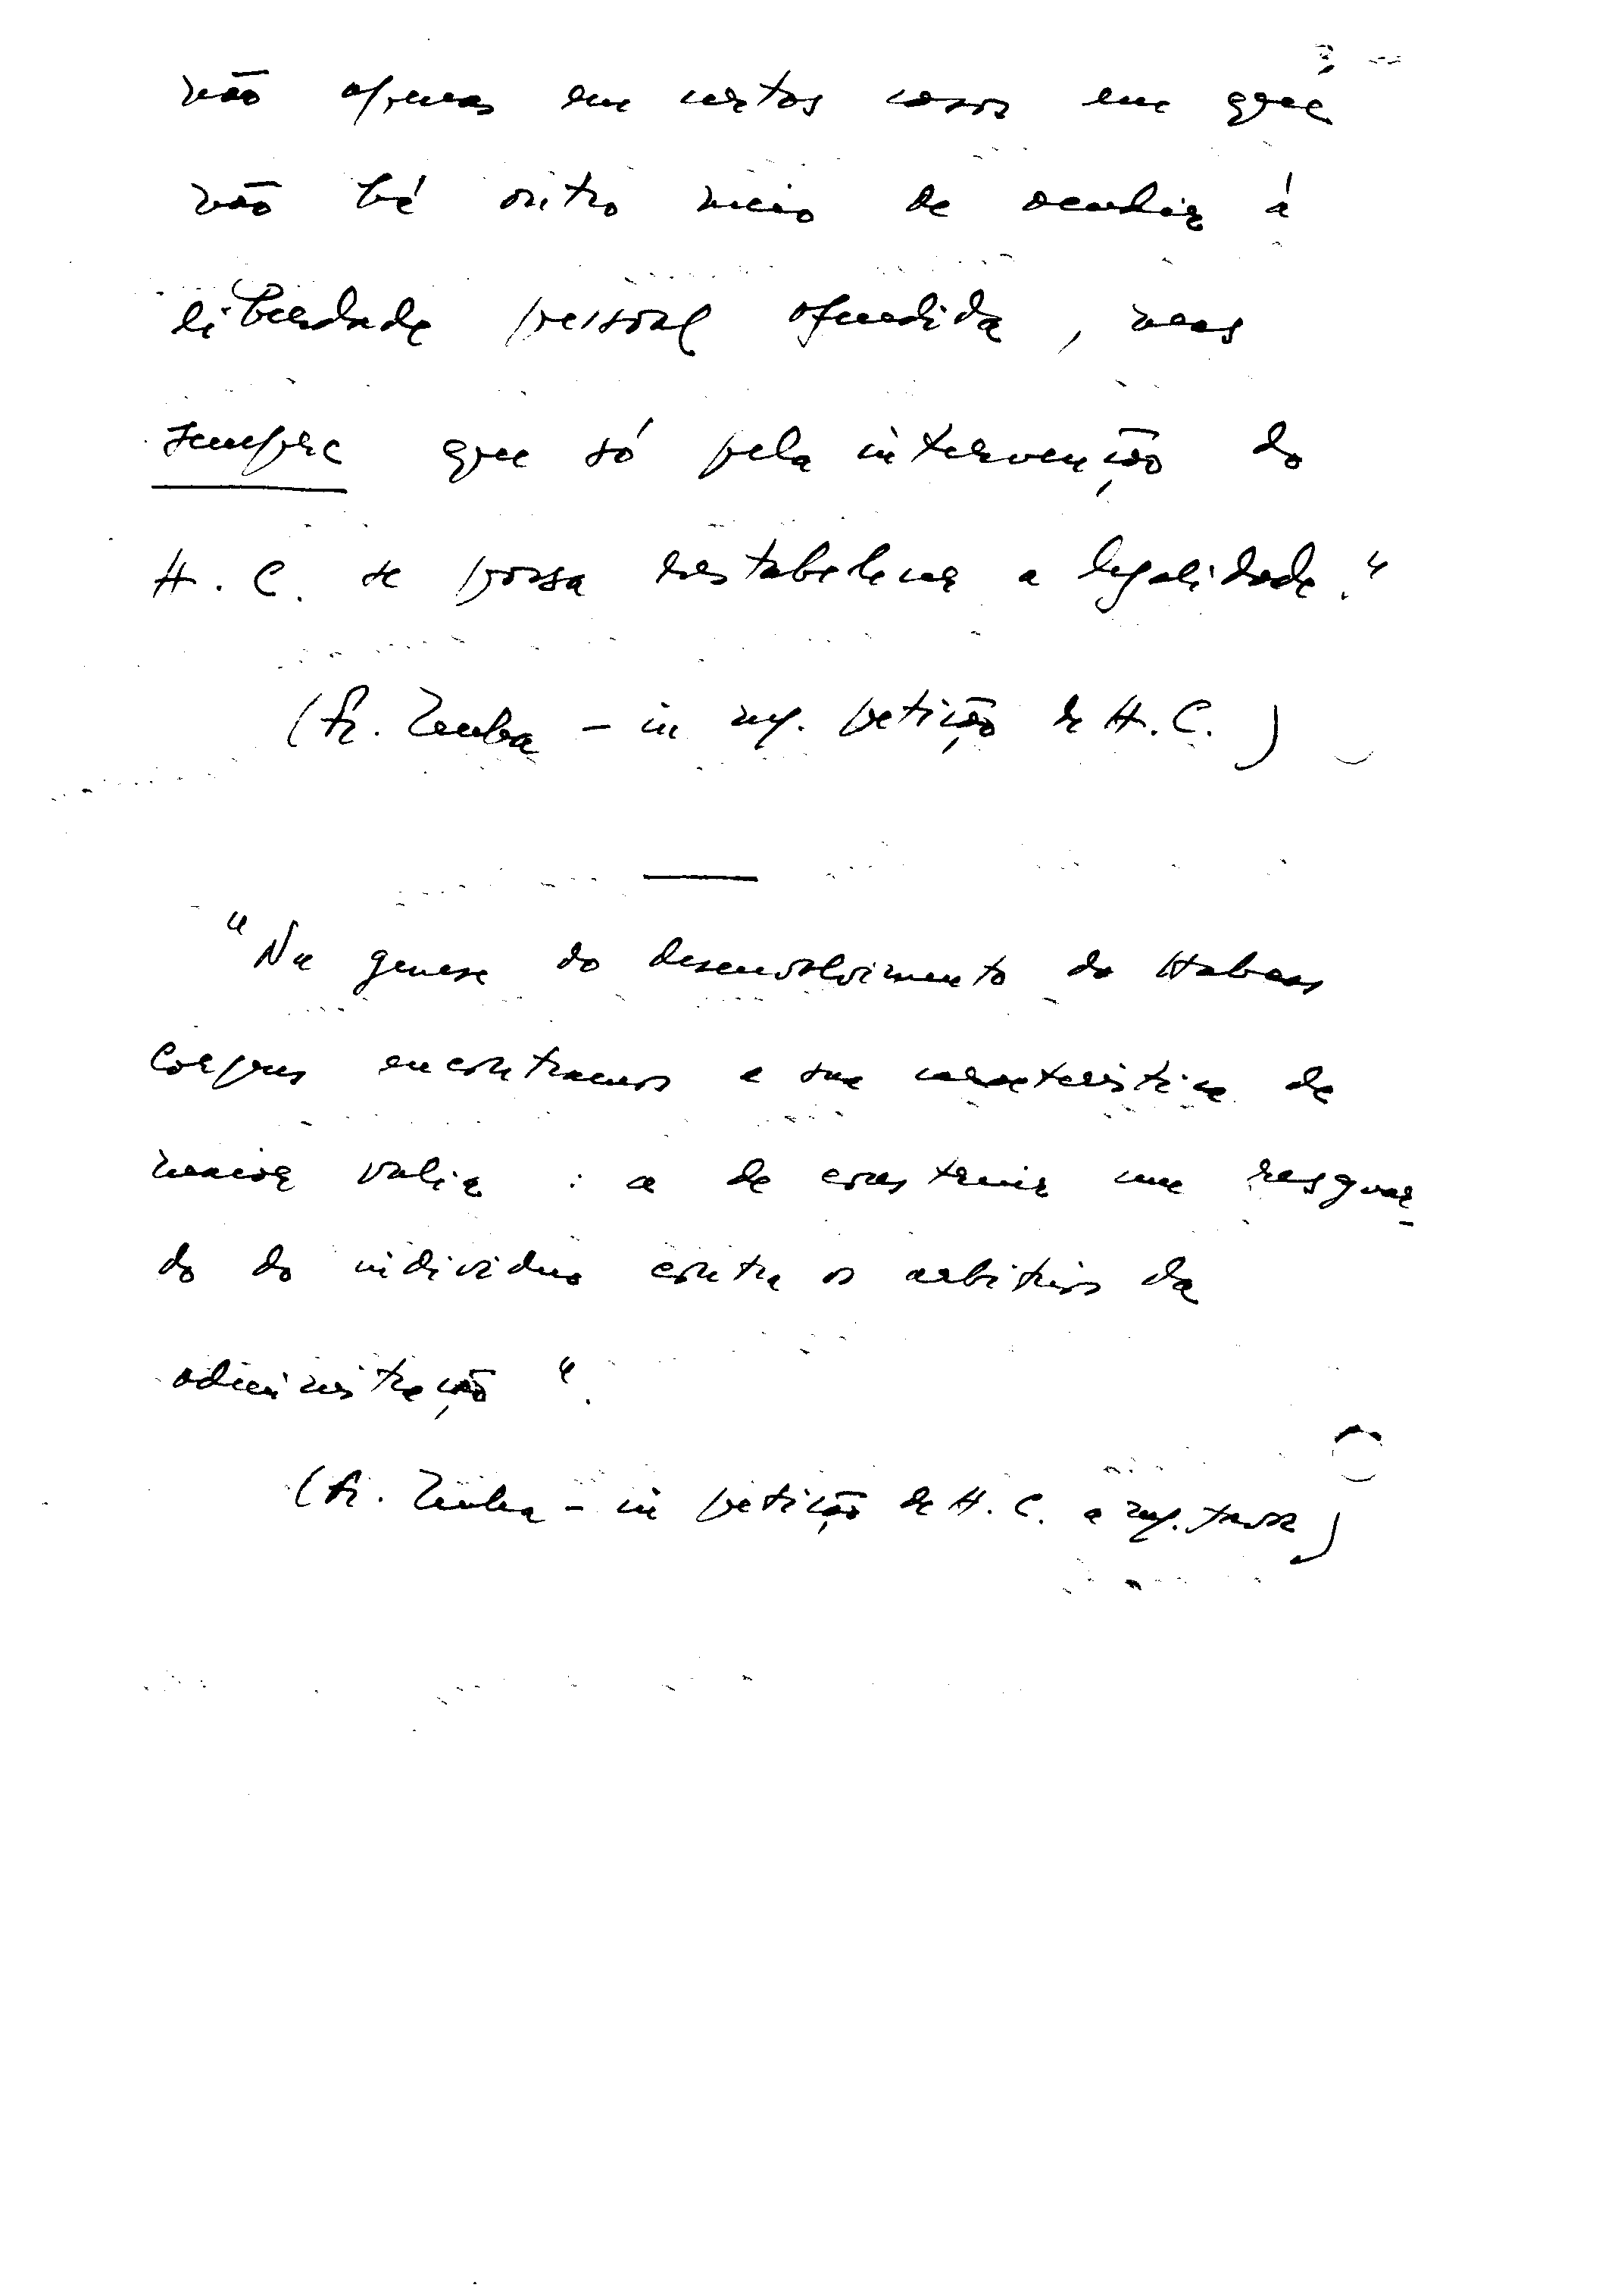 não apenas em certos casos em que
não há outro meio de acudir á
liberdade pessoal ofendida, mas
sempre que só pela intervenção do
H. C. se possa restabelecer a legalidade."
(Fr. Zenha - in petição de H. C.)
"Na genese do desenvolvimento do Habeas
Corpus encontramos a sua caracteristica de
maior valia : a de construir um resguar-
do do individuo contra os arbitrios da
administração".
(Fr. Zenha - in petição de H. C. a)